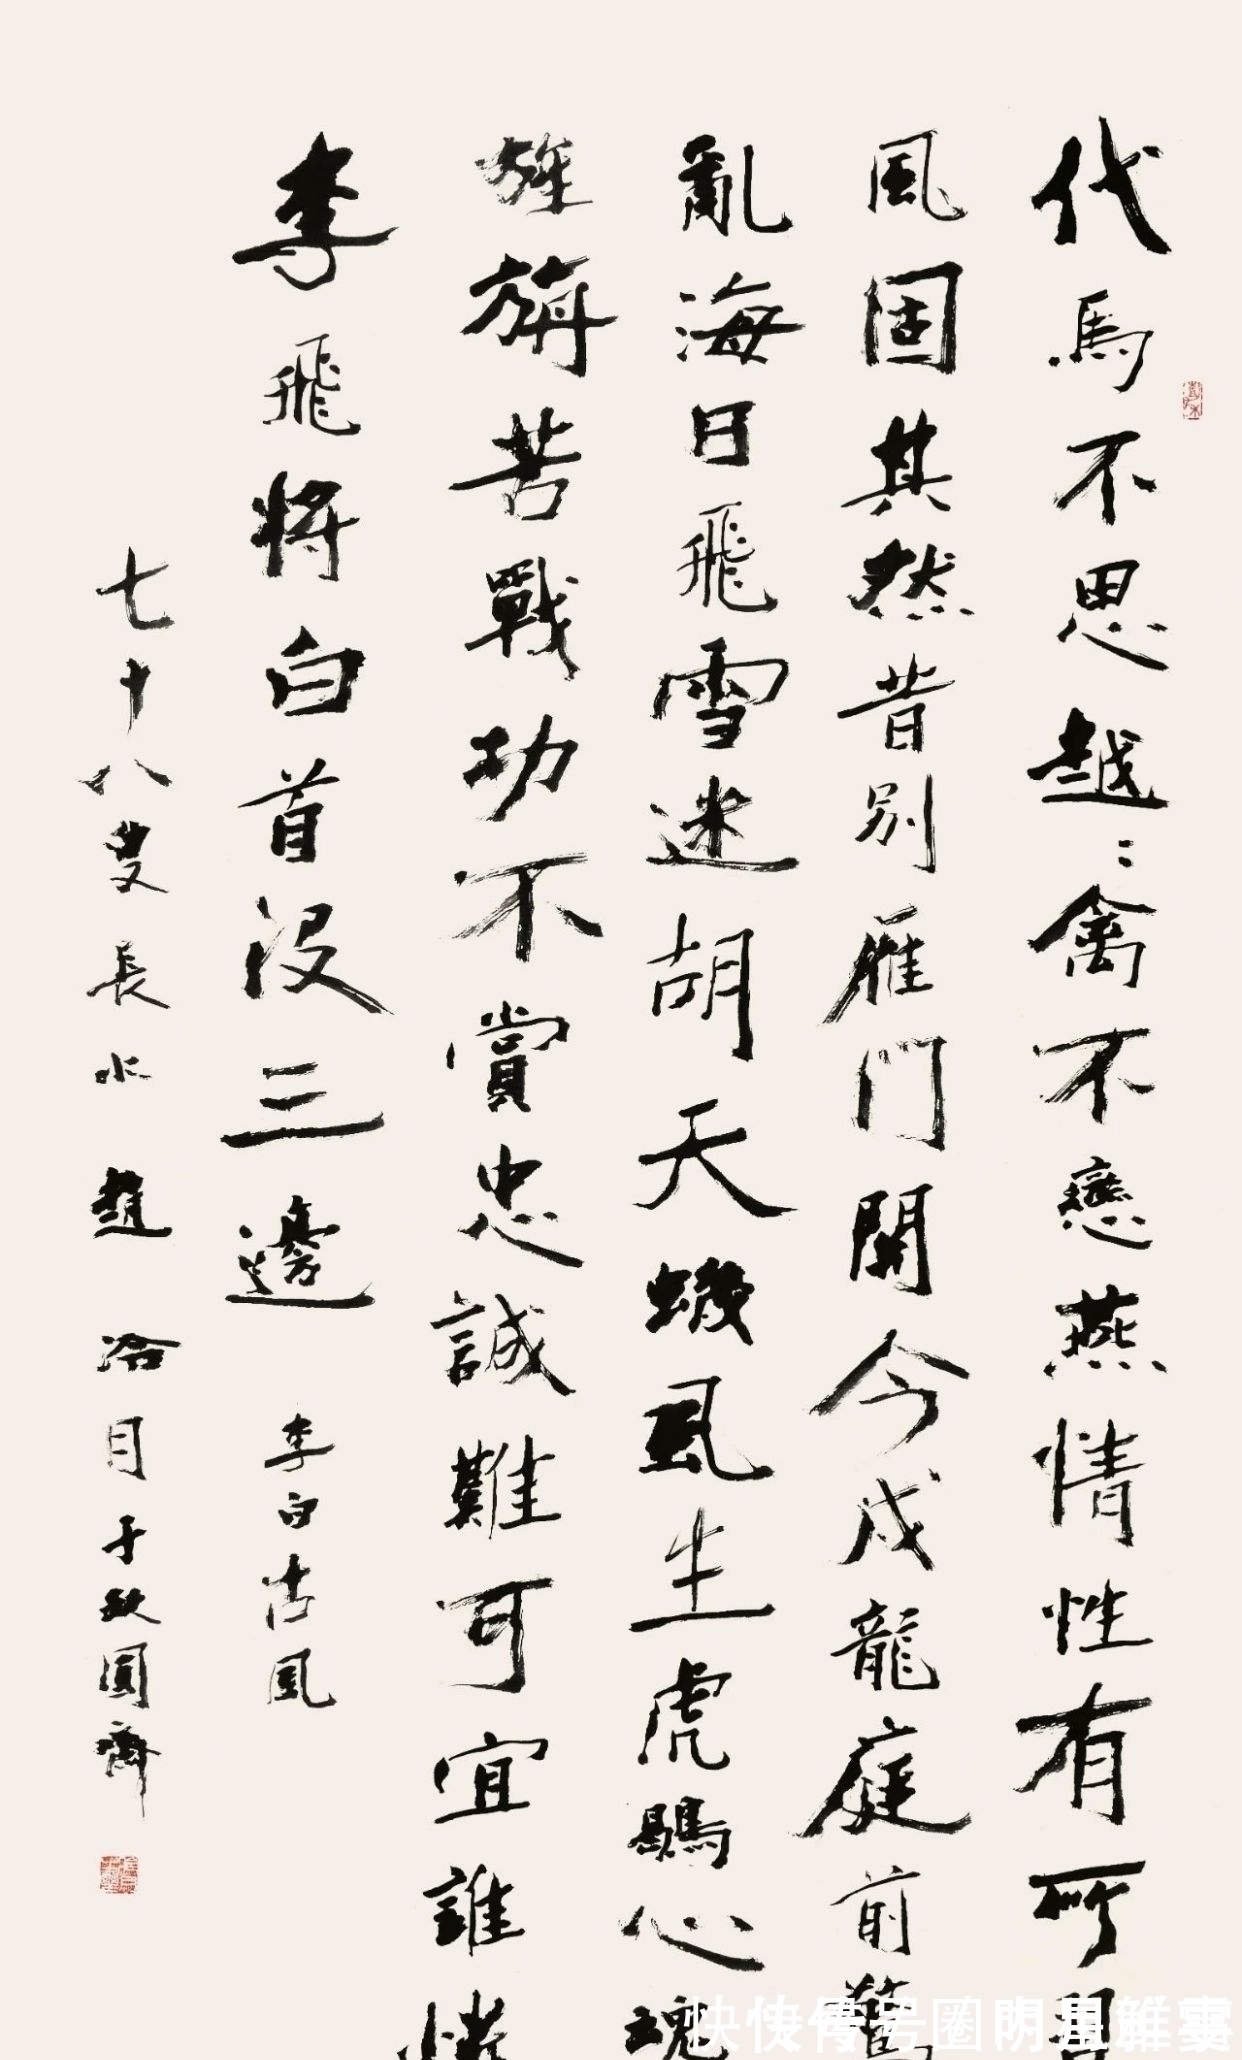 代馬不思越〻禽不戀燕情性有所習
風固其然昔別雁門關今戍龍庭前驚
亂海日飛雪迷胡天蟣虱生虎鶡心魂
旌旃苦戰功不賞忠誠難可宜誰憐
李飛將白首没三邊
李白古風
七十八叟長水趙冷月于致圓齋